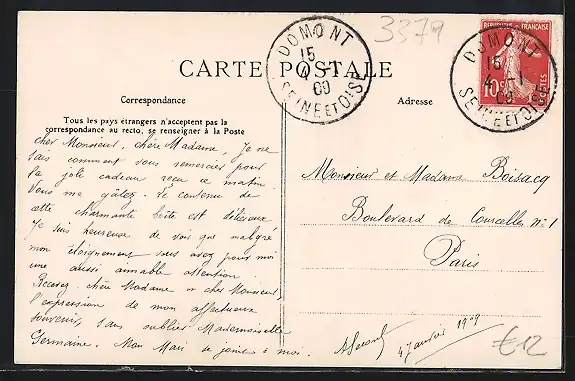 3379
DOMONT
15
4-1
09
SEINE ET OISE
DOMONT
15
4-1
09
SEINE ET OISE
RÉPUBLIQUE FRANÇAISE
10c
POSTES
CARTE POSTALE
Correspondance
Adresse
Tous les pays étrangers n'acceptent pas la
correspondance au recto, se renseigner à la Poste
Cher Monsieur, chère Madame, Je ne
sais comment vous remercier pour
la jolie cadeau reçu ce matin.
Vous me gâtez. Le contenu de
cette charmante boîte est délicieux
Je suis heureuse de vois que malgré
mon éloignement vous avez pour moi
une aussi aimable attention.
Recevez chère Madame et cher Monsieur,
l'expression de mon affectueux
souvenir, sans oublier Mademoiselle
Germaine. Mon Mari se joint à moi.
Monsieur et Madame Boisacq
Boulevard de Courcelles n°1
Paris
4 Janvier 1909
€12